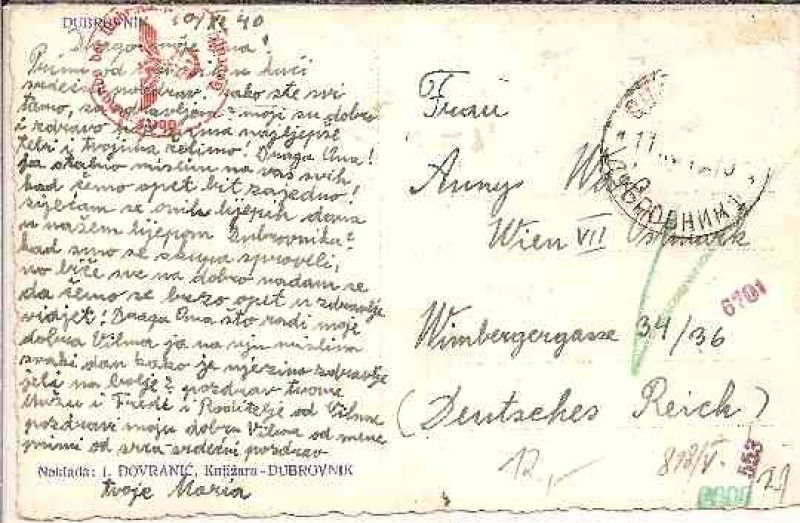 DUBROVNIK
10/XI 40
Draga moje Ana!
Primi od
srdečni pozdrav. kako ste svi
tamo, su moji su dobro
i zdravo najljepše
želi i tvojima želimo! Draga Ana!
ja stalno mislim na vas svih,
kad ćemo opet bit zajedno!
sijećam se onih lijepih dana
u našem lijepom Dubrovniku
kad smo se skupa sproveli,
no biće sve na dobro nadam se
da ćemo se brzo opet u zdravlje
vidjet! Draga Ana što radi moje
dobra Vilma ja na nju mislim
svaki dan kako je njezino zdravlje
jeli na bolje? pozdrav tvome
mužu i Frede i Roditelje od Vilme
pozdravi moju dobru Vilmu od mene
primi od srca srdečni pozdrav
Naklada: I. DOVRANIĆ, Knjižara - DUBROVNIK
tvoje Maria
Frau
Annys
Wien VII Ostmark
Wimbergergasse 34/36
(Deutsches Reich)
ДУБРОВНИК
6701
12,-
898/V.
553